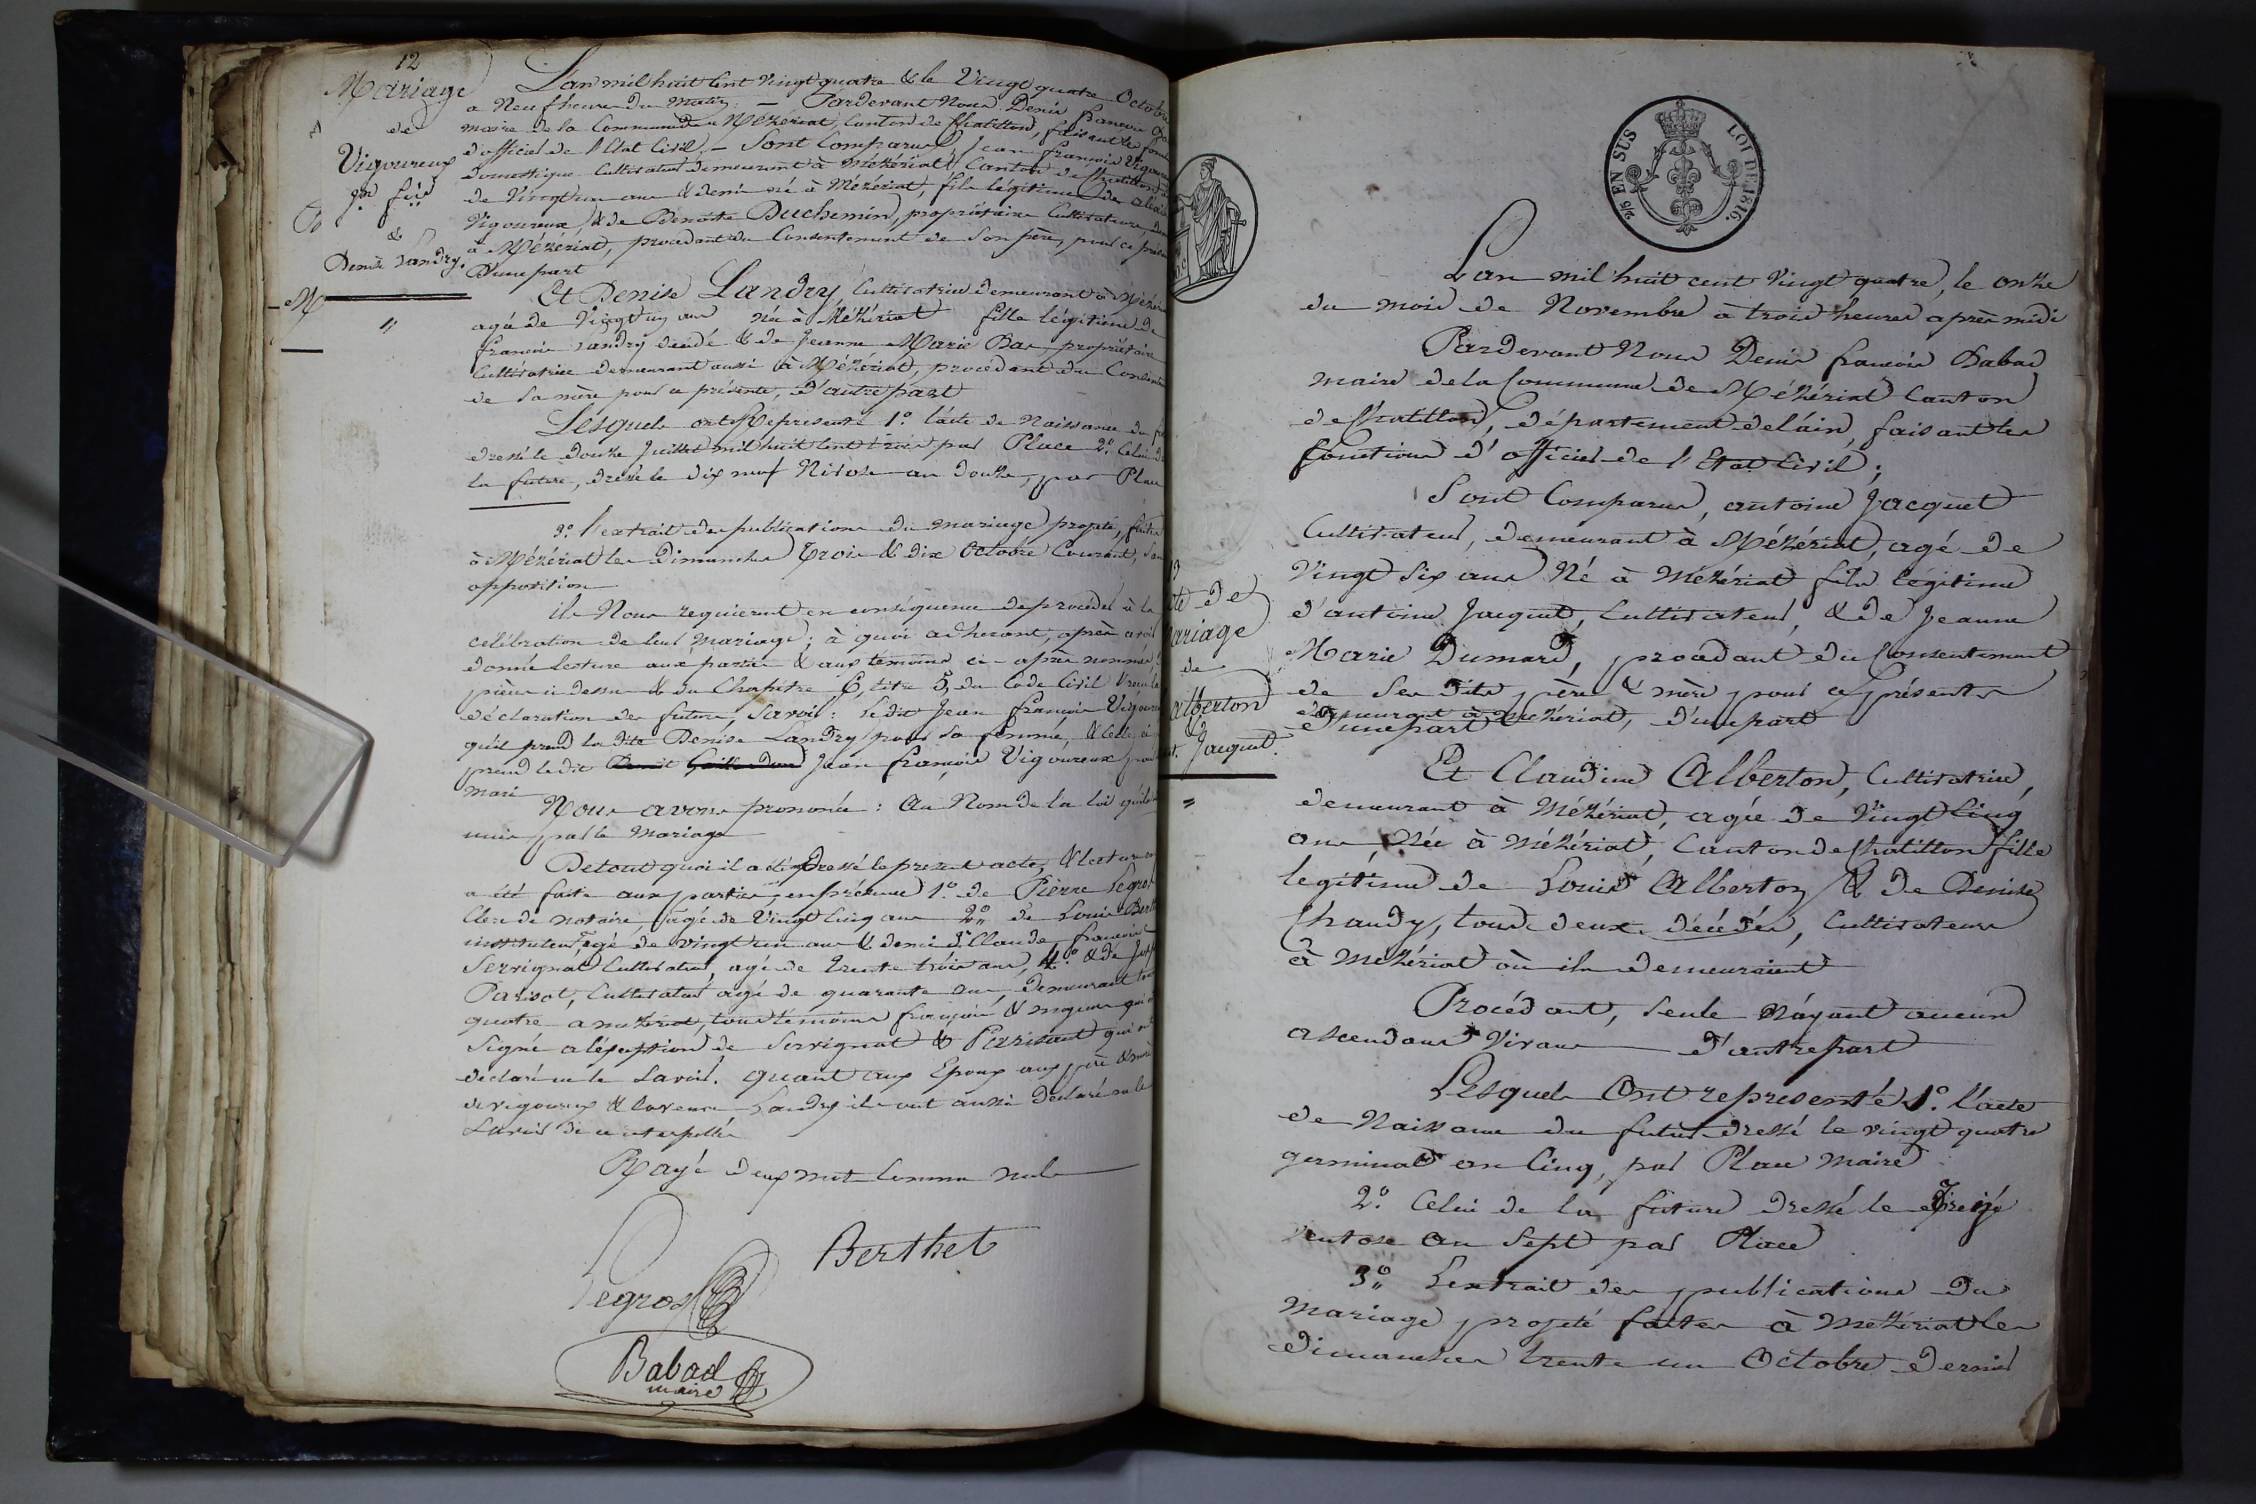 12
Mariage
de
Vigoureux
jn fois
&
Denise Landry.
L'an mil huit cent vingt quatre & le Vingt quatre Octobre
a Neuf heures du matin. — Pardevant Nous Denis françois
maire de la Commune de Mézériat, Canton de Chatillon, faisant les
d'officier de l'Etat Civil, — Sont Comparus, Jean françois
domestique Cultivateur demeurant à Mézériat, Canton de Chatillon
de Vingt un ans & demi né à Mézériat, fils légitime de
Vigoureux, & de Benoite Duchemin, propriétaire Cultivateur,
à Mézériat, procédant du Consentement de Son père, pour ce
d'une part
Et Denise Landry Cultivatrice demeurant à
agée de Vingt un ans née à Mézériat fille légitime de
françois Landry décédé & de Jeanne Marie Bas propriétaire
Cultivatrice demeurant aussi à Mézériat, procédant du
de Sa mère pour ce présente, d'autre part
Lesquels ont Représenté 1.º l'acte de Naissance du
dressé le douze Juillet mil huit cent trois par Place 2.º Celui de
la future, dressé le dix neuf Nivose an douze, par Place
3.º l'extrait des publications du mariage projeté, faites
à Mézériat les Dimanches Trois & dix Octobre Courant,
opposition
ils Nous requierent en conséquence de procéder à la
celébration de leur mariage; à quoi adherant, après avoir
donné lecture aux parties & aux témoins ci-après nommés
pièces ci dessus & du Chapitre 6, titre 5, du Code Civil
déclaration des futurs, Savoir: Ledit Jean françois
qu'il prend la dite Denise Landry pour Sa femme, & Celle ci
prend le dit Jean françois Vigoureux pour
mari
Nous avons prononcé: Au Nom de la loi qu'ils
unis par le mariage
De tout quoi il a été Dressé le present acte, & lecture en
a été faite aux parties, en présence 1.º de Pierre Legros
Clerc de notaire, agé de Vingt Cinq ans 2.º de Louis
instituteur agé de vingt un ans & demi 3.º Claude françois
Servignat Cultivateur, agé de trente trois ans, 4.º & de
Parisot, Cultivateur agé de quarante ans, demeurant tous
quatre a mézériat, tous témoins français & majeurs qui
Signé a l'éxception de Servignat & Parisaut qui ont
déclaré ne le Savoir. quant aux Epoux aux père & mère
de vigoureux & la veuve Landry ils ont aussi déclaré ne le
Savoir de ce interpellés
Rayé deux mots comme nuls
Berthet
Legros
Babad
maire
Mariage
de
Alberton
&
Jacquet.
2/5 EN SUS
LOI DE 1816.
L'an mil huit cent Vingt quatre, le onze
du mois de Novembre à trois heures après midi
Pardevant Nous Denis françois Babad
maire de la Commune de Mézériat Canton
de Chatillon, département de l'ain, faisant les
fonctions d'officier de l'Etat Civil;
Sont Comparus, antoine Jacquet
Cultivateur, demeurant à Mézériat, agé de
Vingt Six ans Né à Mézériat fils légitime
d'antoine Jacquet, Cultivateur, & de Jeanne
Marie Dumard, procédant du Consentement
de Ses dits père & mère pour ce présents
demeurant à mézériat, d'une part
d'une part
Et Claudine Alberton, Cultivatrice,
demeurant à Mézériat, agée de Vingt Cinq
ans, Née à Mézériat, Canton de Chatillon fille
legitime de Louis Alberton & de Denise
Chaudy, tous deux décédés, Cultivateurs
à Mézériat où ils demeuraient
Procédant, Seule N'ayant aucun
ascendans Vivans d'autre part
Lesquels Ont representé 1.º l'acte
de Naissance du futur dressé le vingt quatre
germinal an Cinq, par Place maire
2.º Celui de la future dressé le
ventose an Sept par Place
3.º L'extrait des publications du
mariage projeté faites à Mézériat les
dimanches trente un Octobre dernier